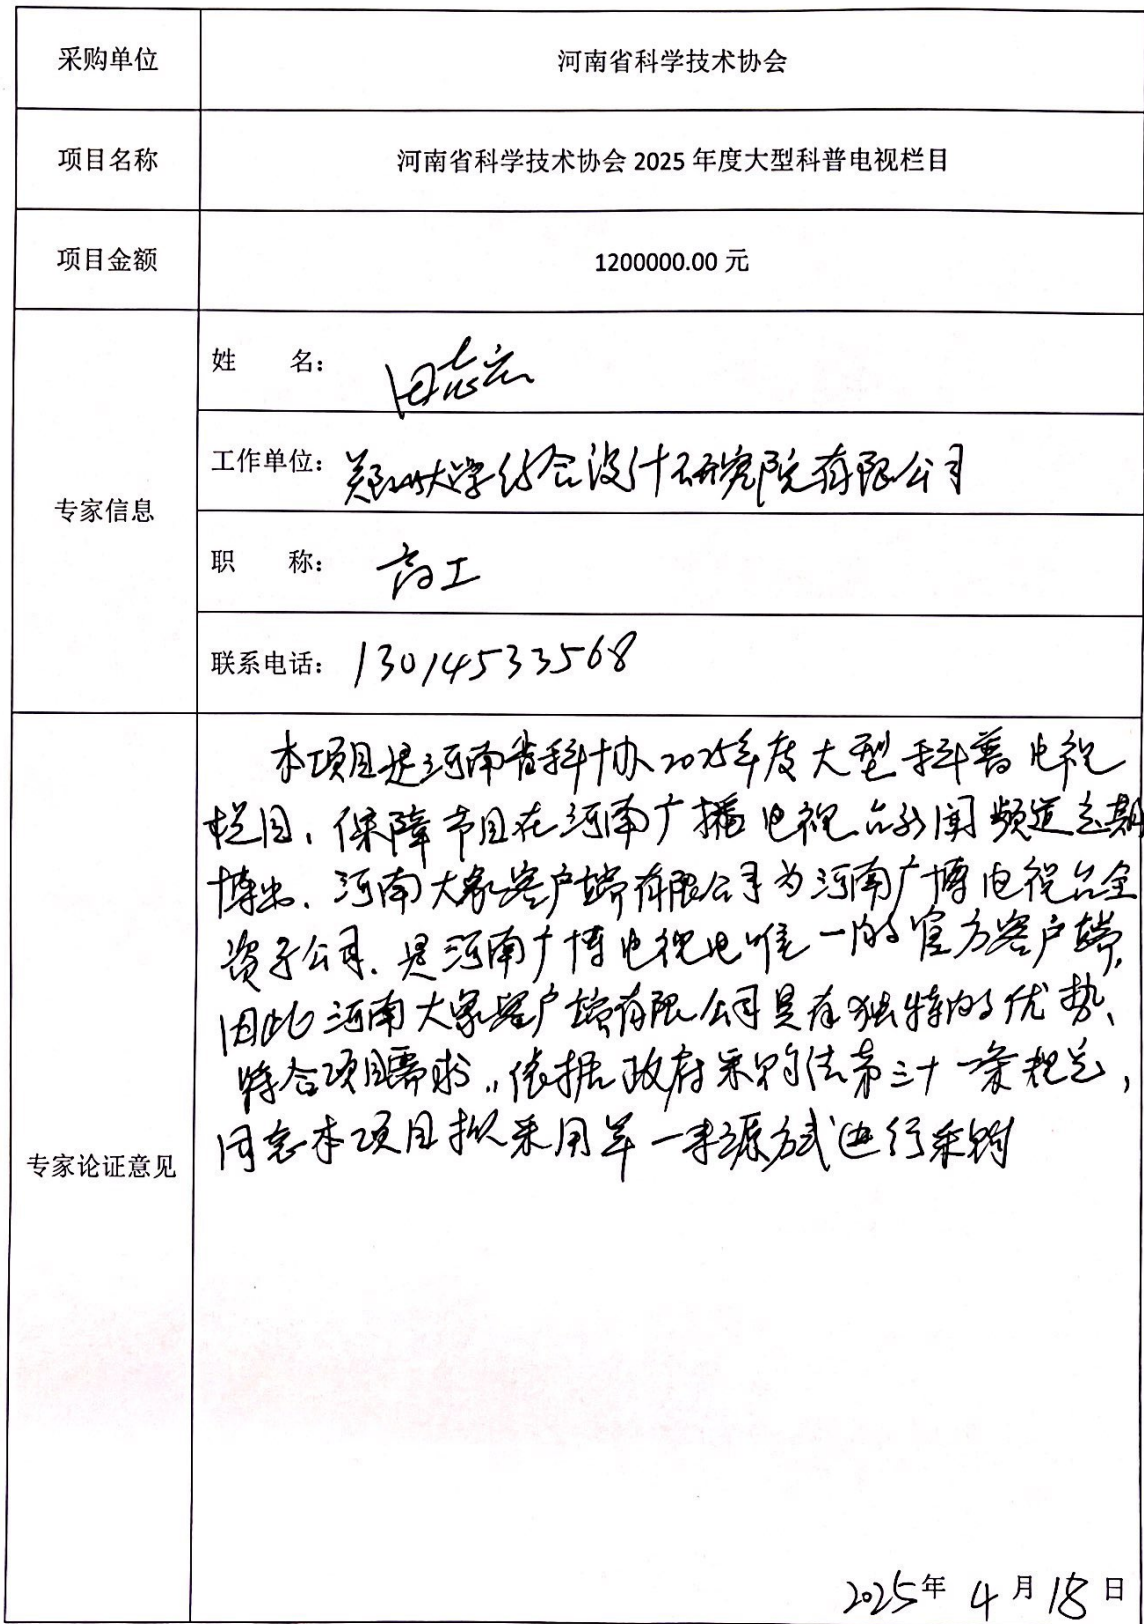 采购单位 河南省科学技术协会
项目名称 河南省科学技术协会 2025 年度大型科普电视栏目
项目金额 1200000.00 元
专家信息
姓 名： 田志宏
工作单位： 郑州大学综合设计研究院有限公司
职 称： 高工
联系电话： 13014533568
专家论证意见
本项目是河南省科协2025年度大型科普电视
栏目，保障节目在河南广播电视台新闻频道定期
播出、河南大象客户端有限公司为河南广播电视台全
资子公司、是河南广播电视电唯一的官方客户端，
因此河南大象客户端有限公司具有独特的优势、
符合项目需求。依据政府采购法第三十一条规定，
同意本项目拟采用单一来源方式进行采购
2025年 4 月 18 日